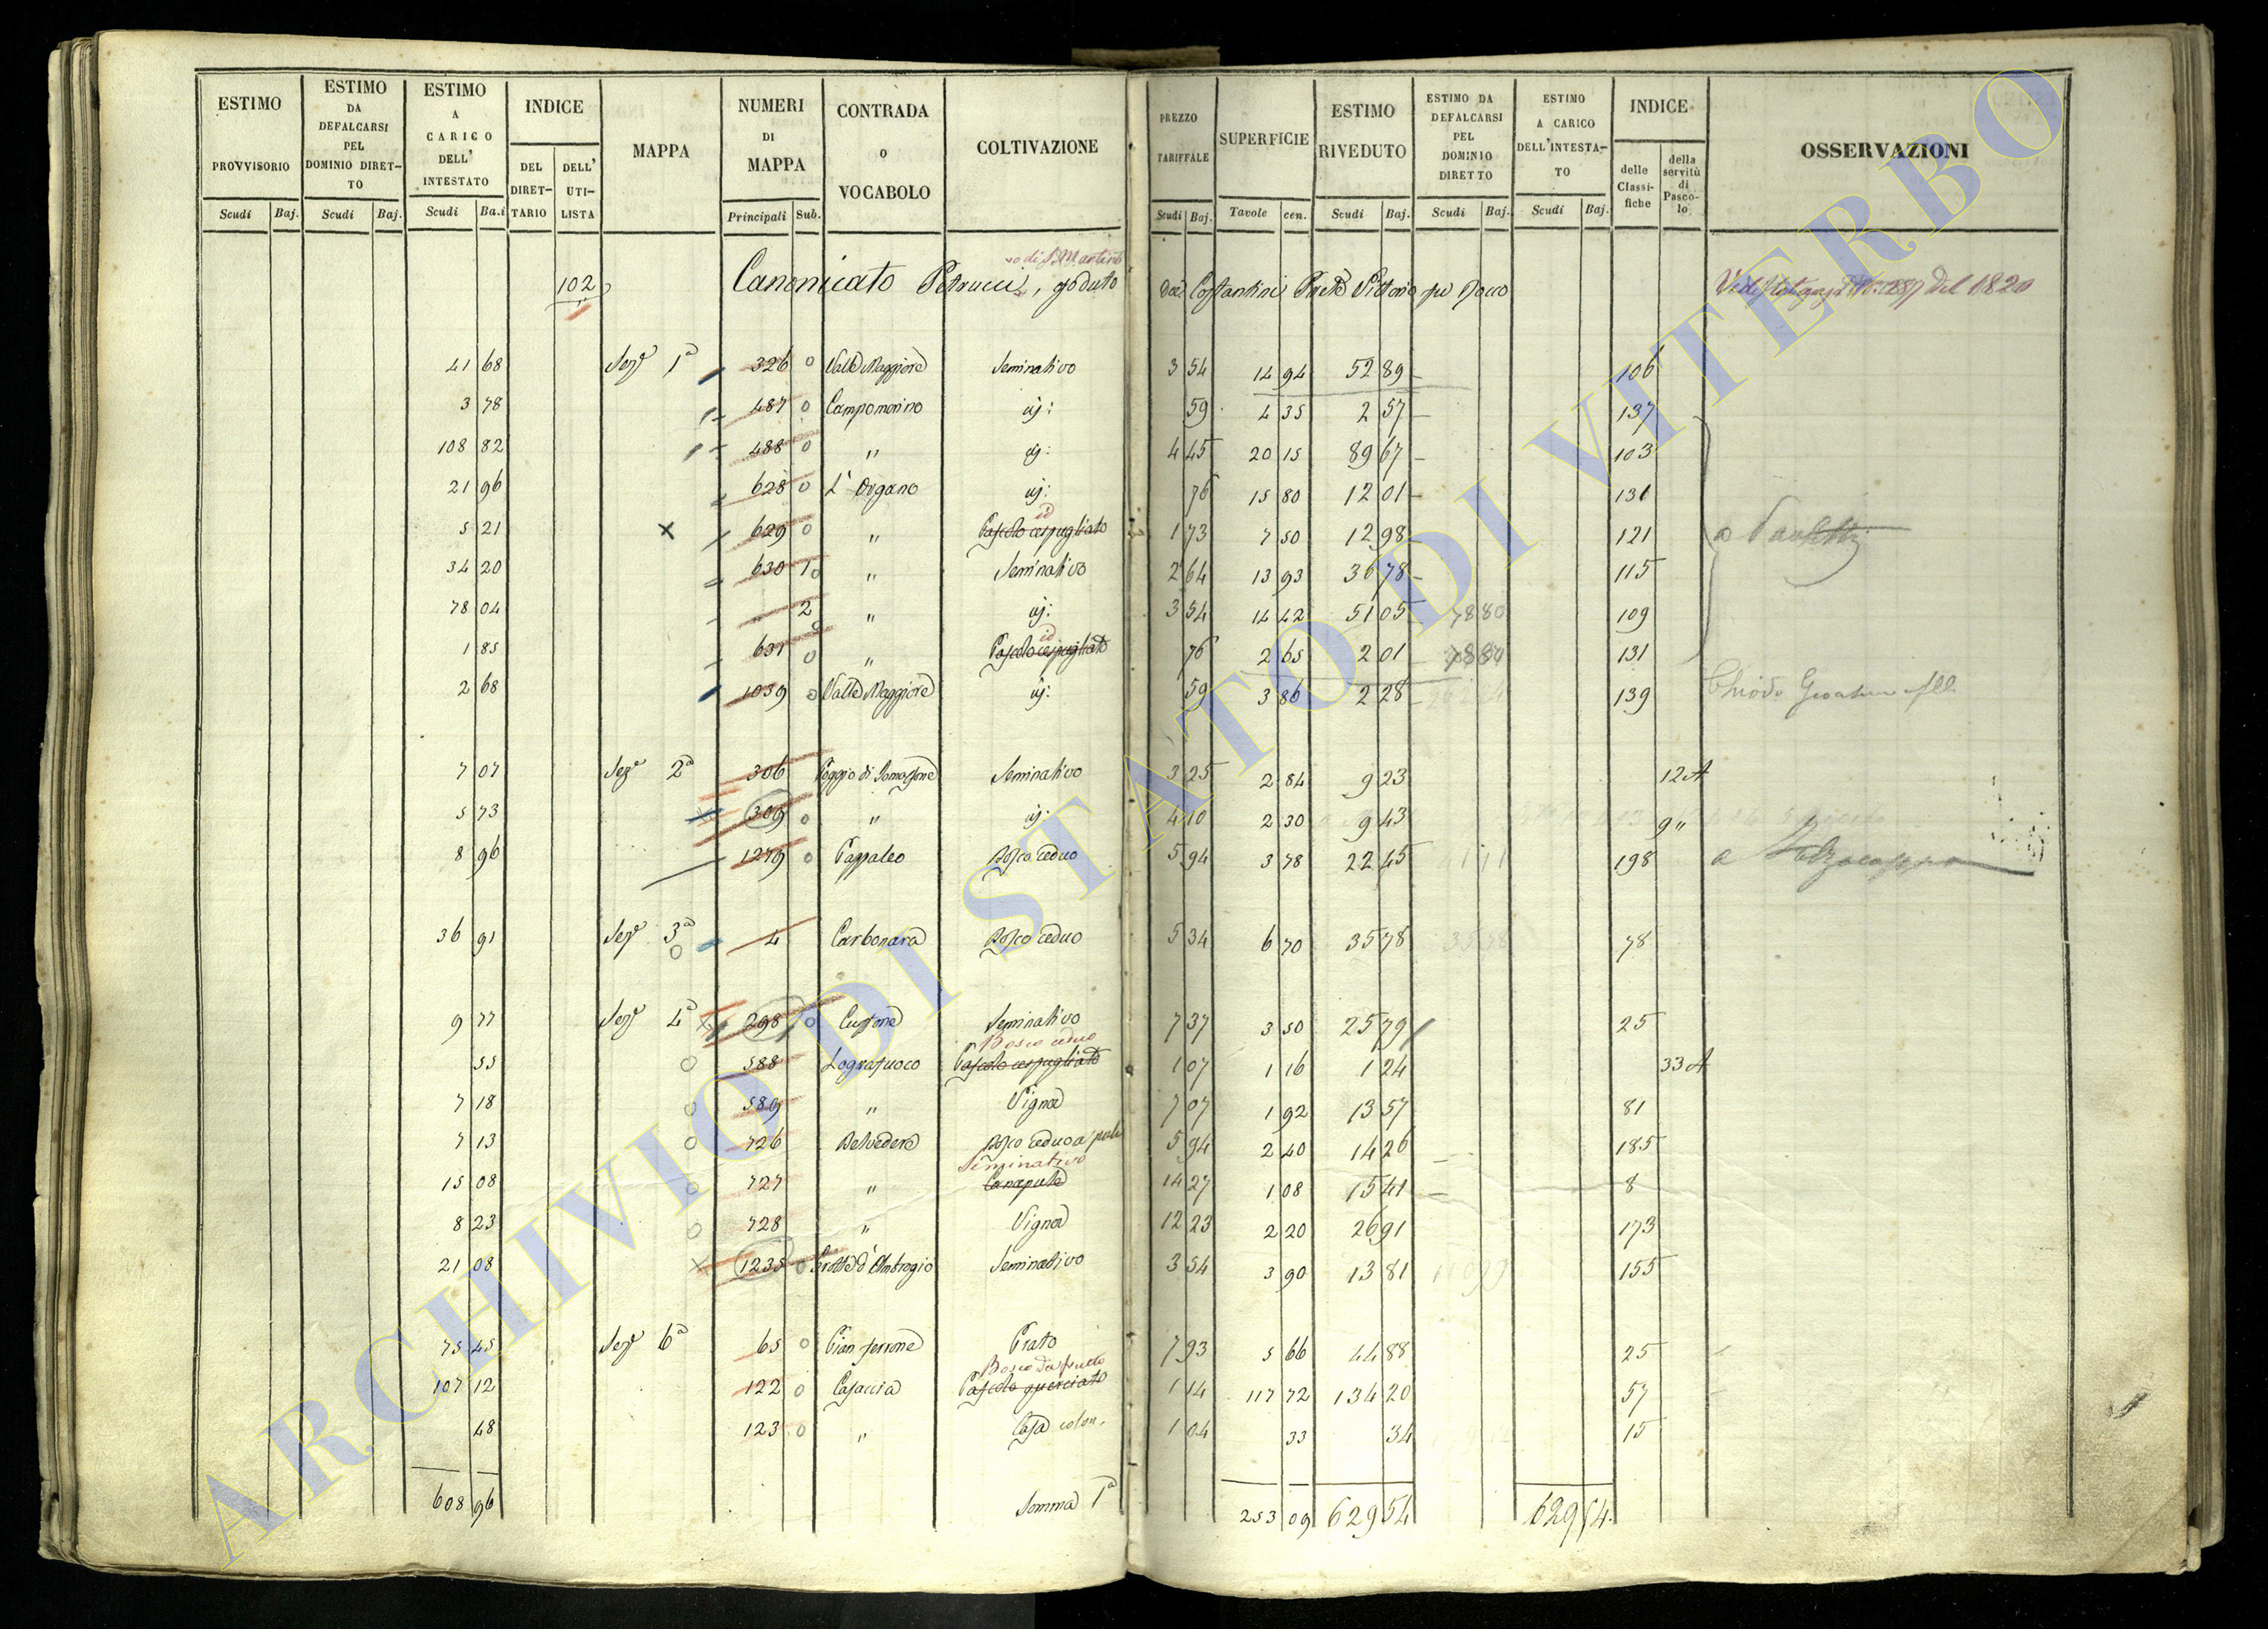 ESTIMO PROVVISORIO Scudi Baj.
ESTIMO DA DEFALCARSI PEL DOMINIO DIRET-TO Scudi Baj.
ESTIMO A CARICO DELL' INTESTATO Scudi Ba.i
INDICE DEL DIRET-TARIO DELL' UTI-LISTA
MAPPA
NUMERI DI MAPPA Principali Sub.
CONTRADA O VOCABOLO
COLTIVAZIONE
PREZZO TARIFFALE Scudi Baj.
SUPERFICIE Tavole cen.
ESTIMO RIVEDUTO Scudi Baj.
ESTIMO DA DEFALCARSI PEL DOMINIO DIRETTO Scudi Baj.
ESTIMO A CARICO DELL'INTESTA-TO Scudi Baj.
INDICE delle Classi-fiche della servitù di Pasco-lo
OSSERVAZIONI
di S. Martino
102 Canonicato Petrucci, goduto Costantini Vittorio fu del 1820
41 68 Sez.e 1a 326 0 Valle Maggiore Seminativo 3 54 14 94 52 89 106
3 78 487 0 Campomorino id: 59 4 35 2 57 137
108 82 488 0 " id: 4 45 20 15 89 67 103
21 96 628 0 L'Organo id: 76 15 80 12 01 131
id
5 21 x 629 0 " Pascolo cespugliato 1 73 7 50 12 98 121 a
34 20 630 1 0 " Seminativo 2 64 13 93 36 78 115
78 04 " 2 0 " id: 3 54 14 42 51 05 78 80 109
id
1 85 631 0 " Pascolo cespugliato 76 2 65 2 01 131
2 68 1039 0 Valle Maggiore id: 59 3 86 2 28 139 Chiodo
7 07 Sez.e 2a 306 Poggio di Seminativo 3 25 2 84 9 23 12 A
5 73 309 0 " id: 4 10 2 30 9 43 9 "
8 96 1279 0 Pappaleo Bosco ceduo 5 94 3 78 22 45 198 a
36 91 Sez.e 3a 0 4 Carbonara Bosco ceduo 5 34 6 70 35 78 35 78 78
9 77 Sez.e 4a 298 0 Seminativo 7 37 3 50 25 79 25
Bosco ceduo
55 0 588 Lografuoco Pascolo cespugliato 1 07 1 16 1 24 33 A
7 18 0 589 " Vigna 7 07 1 92 13 57 81
7 13 0 726 Belvedere Bosco ceduo a pali 5 94 2 40 14 26 185
Seminativo
15 08 0 727 " Canepule 14 27 1 08 15 41 8
8 23 0 728 " Vigna 12 23 2 20 26 91 173
21 08 x 1235 0 Grotte d'Ambrogio Seminativo 3 54 3 90 13 81 155
75 45 Sez.e 6a 65 0 Pian ferrone Prato 7 93 5 66 44 88 25
Bosco da frutto
107 12 122 0 Casaccia Pascolo querciato 1 14 117 72 134 20 57
48 123 0 " Casa colon. 1 04 33 34 15
608 96 Somma 1a 253 09 629 54 629 54
ARCHIVIO DI STATO DI VITERBO